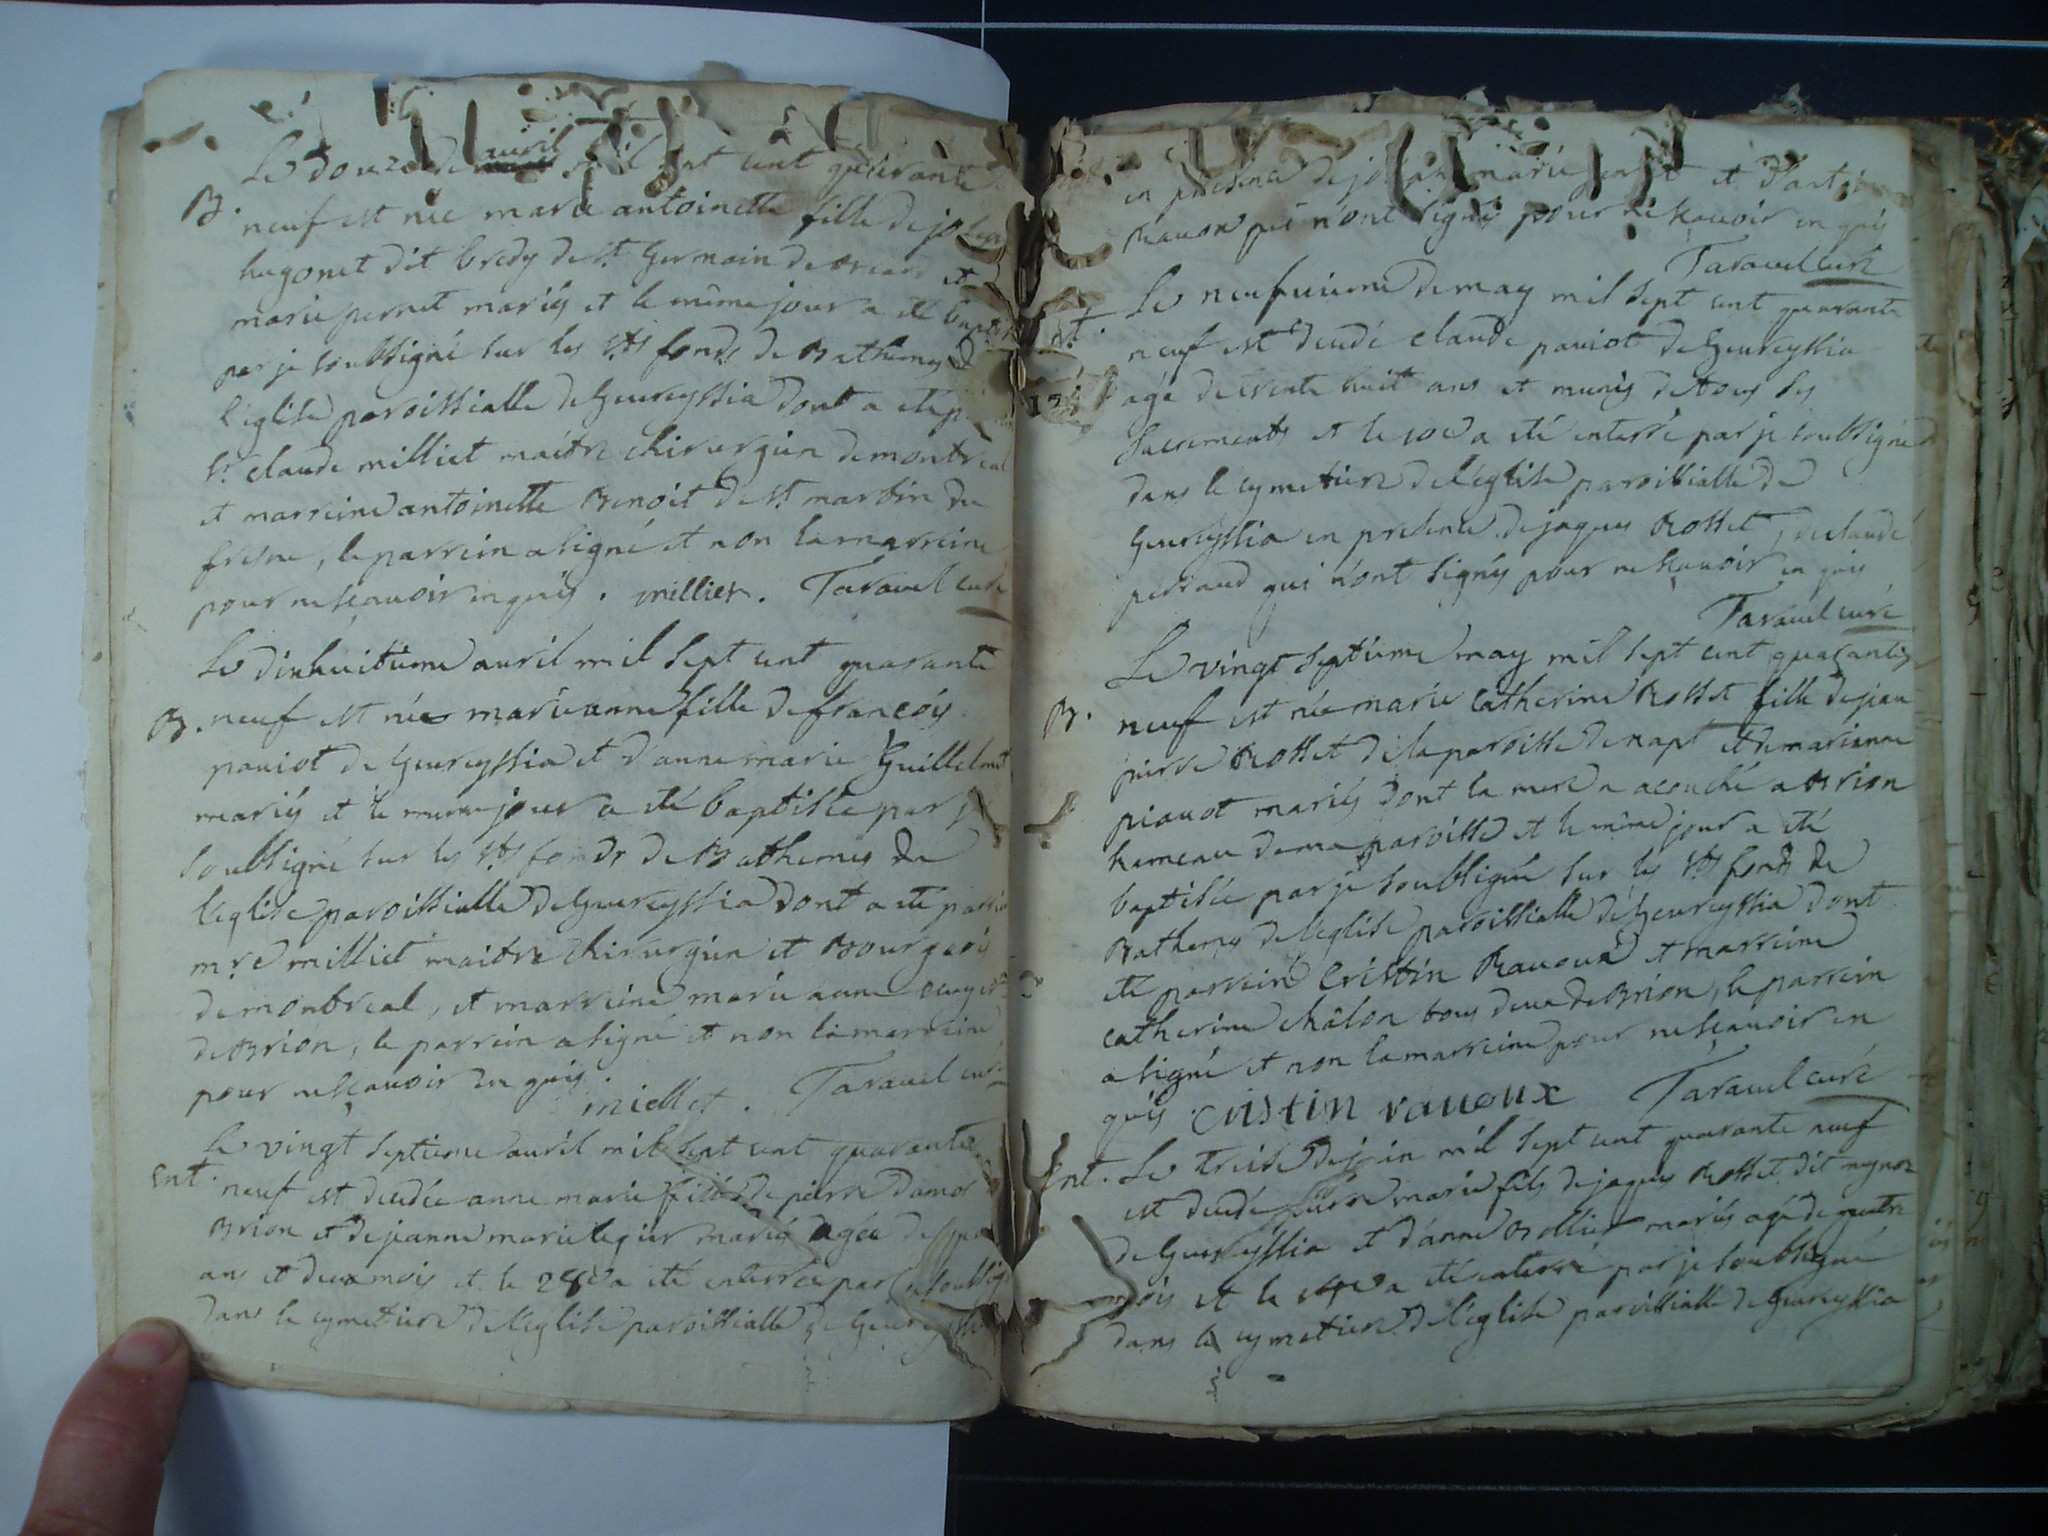 Le douze de avril mil sept cent quarante
B. neuf est née marie antoinette fille de joseph
hugonet dit bredy de st. Germain de et
marie pernet mariés et le même jour a été
par je soubsigné sur les sts fonds de Bathemes de
l'eglise paroissialle de Geureyssia dont a été
sr. claude milliet maitre chirurgien de montreal
et marreine antoinette Benoit de st. martin du
fresne, le parrein a signé et non la marreine
pour ne sçavoir en quis. millier. Taravel curé
Le dixhuitieme avril mil sept cent quarante
B. neuf est née marie anne fille de françois
paviot de Geureyssia et d'anne marie Guillelmet
mariés et le meme jour a été baptisée par je
soubsigné sur les sts fonds de Bathemes de
l'eglise paroissialle de Geureyssia dont a été parrein
mre milliet maitre chirurgien et Bourgeois
de montreal, et marreine marie anne
de Brion, le parrein a signé et non la marreine
pour ne sçavoir en quis.
milliet. Taravel curé
Le vingt septieme avril mil sept cent quarante
Ent. neuf est decedée anne marie fille de pierre
Brion et de jeanne marie legier mariés agée de
ans et deux mois et le 28e a été enterrée par je soubsigné
dans le cymetiere de l'eglise paroissialle de Geureyssia
en presence de marie et
Ravon qui n'ont signés pour ne sçavoir en quis
Taravel curé
Le neufvieme de may mil sept cent quarante
neuf est decedé claude paviot de Geureyssia
agé de trente huit ans et munis de tous les
sacrements et le 10e a été enterré par je soubsigné
dans le cymetiere de l'eglise paroissialle de
Geureyssia en presence de jaques Rosset, de claude
perraud qui n'ont signés pour ne sçavoir en quis
Taravel curé
Le vingt septieme may mil sept cent quarante
B. neuf est née marie catherine Rosset fille de jean
pierre Rosset de la paroisse de napt et de marianne
piavot mariés dont la mere a acouché a Brion
hameau de ma paroisse et le même jour a été
baptisée par je soubsigné sur les sts fonds de
Bathemes de l'eglise paroissialle de Geureyssia dont
été parrein Cristin Ravoux et marreine
catherine châlon tous deux de Brion, le parrein
a signé et non la marreine pour ne sçavoir en
quis. cristin ravoux Taravel curé
Ent. Le treise de juin mil sept cent quarante neuf
est decedé pierre marie fils de jaques Rosset dit mignon
de Geureyssia et d'anne Bollier mariés agé de quatre
mois et le 14e a été enterré par je soubsigné
dans le cymetiere de l'eglise paroissialle de Geureyssia